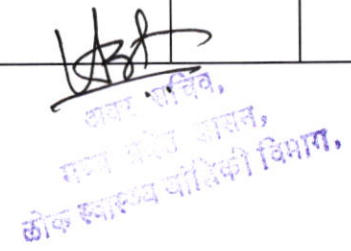 अवर सचिव,
मध्य प्रदेश शासन,
लोक स्वास्थ्य यांत्रिकी विभाग,